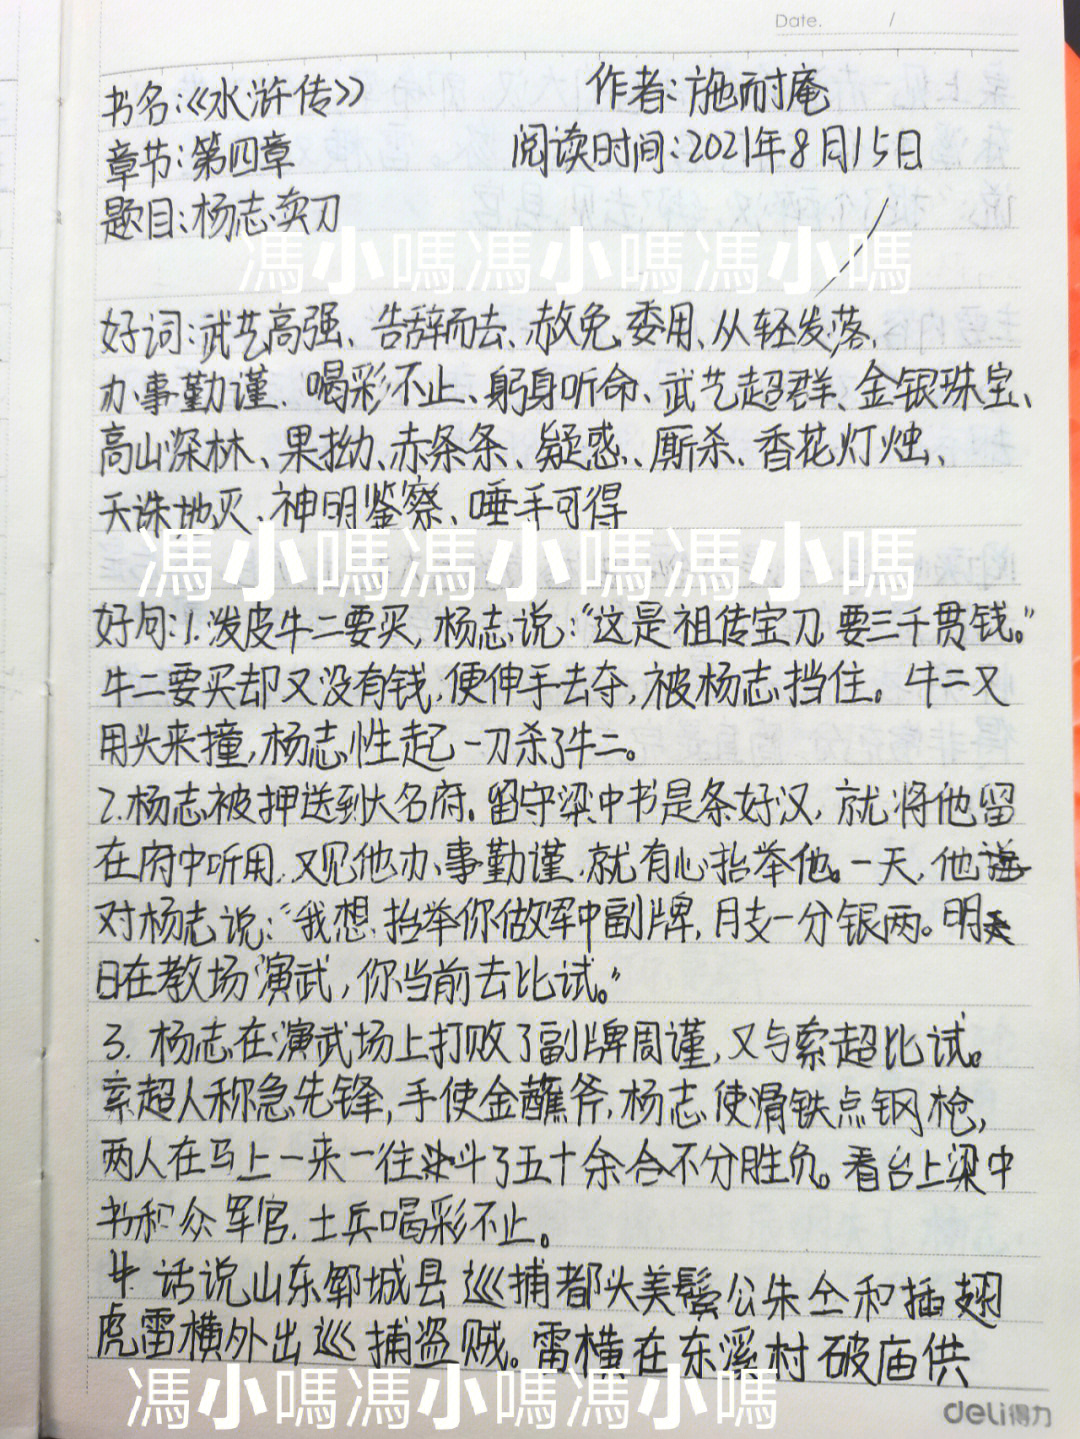 Date. /
书名:《水浒传》 作者:施耐庵
章节:第四章 阅读时间:2021年8月15日
题目:杨志卖刀
馮小嗎馮小嗎馮小嗎
好词:武艺高强、告辞而去、赦免、委用、从轻发落、
办事勤谨、喝彩不止、躬身听命、武艺超群、金银珠宝、
高山深林、果拗、赤条条、疑惑、厮杀、香花灯烛、
天诛地灭、神明鉴察、唾手可得
馮小嗎馮小嗎馮小嗎
好句:1.泼皮牛二要买,杨志说:“这是祖传宝刀,要三千贯钱。”
牛二要买却又没有钱,便伸手去夺,被杨志挡住。牛二又
用头来撞,杨志性起一刀杀了牛二。
2.杨志被押送到大名府。留守梁中书是条好汉,就将他留
在府中听用,又见他办事勤谨,就有心抬举他。一天,他
对杨志说:“我想抬举你做军中副牌,月支一分银两。明
日在教场演武,你当前去比试。”
3.杨志在演武场上打败了副牌周谨,又与索超比试。
索超人称急先锋,手使金蘸斧,杨志使滑铁点钢枪,
两人在马上一来一往斗了五十余合不分胜负。看台上梁中
书和众军官、士兵喝彩不止。
4.话说山东郓城县巡捕都头美髯公朱仝和插翅
虎雷横外出巡捕盗贼。雷横在东溪村破庙供
馮小嗎馮小嗎馮小嗎
deli得力